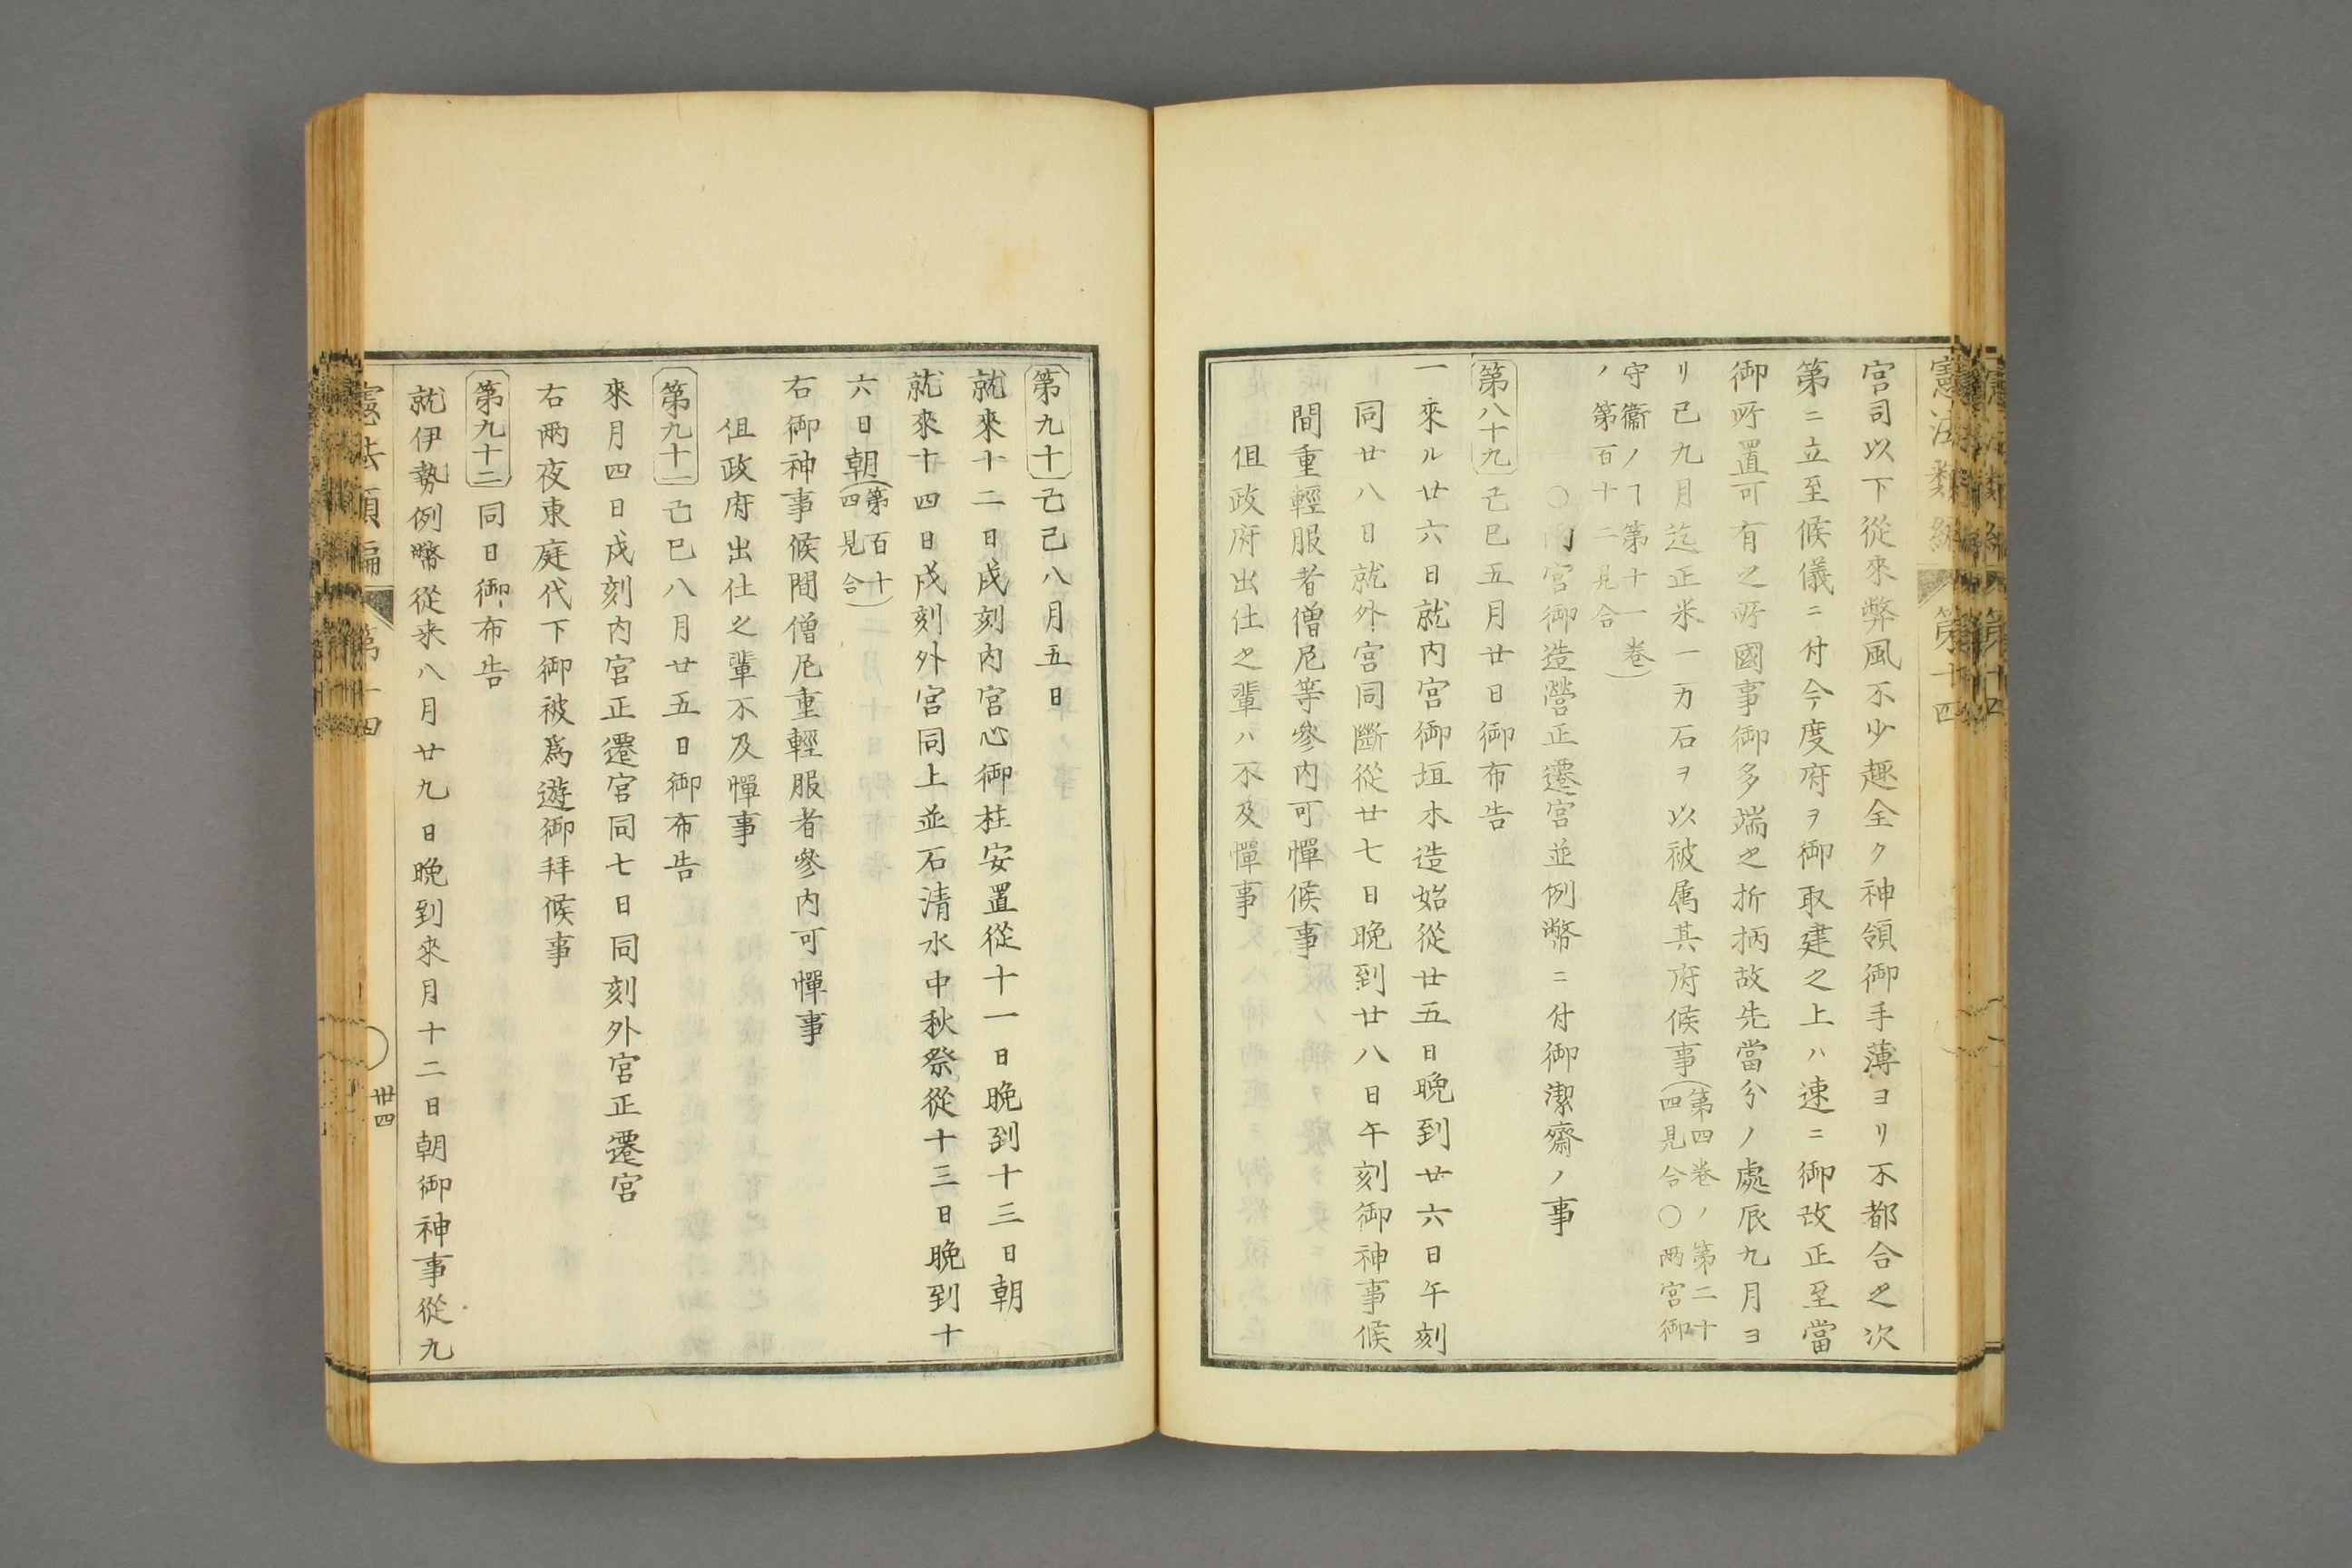 憲法類編 第十四
宮司以下從來弊風不少趣全ク神領御手薄ヨリ不都合之次
第ニ立至候儀ニ付今度府ヲ御取建之上ハ速ニ御改正至當
御所置可有之所國事御多端之折柄故先當分ノ處辰九月ヨ
リ巳九月迄正米一万石ヲ以被属其府候事(第四卷ノ第二十
四見合〇両宮御
守衞ノヿ第十一卷)
ノ第百十二見合
〇内宮御造營正遷宮並例幣ニ付御潔齋ノ事
第八十九 己巳五月廿日御布告
一來ル廿六日就内宮御垣木造始從廿五日晩到廿六日午刻
同廿八日就外宮同斷從廿七日晩到廿八日午刻御神事候
間重輕服者僧尼等參内可憚候事
但政府出仕之輩ハ不及憚事
第九十 己巳八月五日
就來十二日戌刻内宮心御柱安置從十一日晩到十三日朝
就來十四日戌刻外宮同上並石清水中秋祭從十三日晩到十
六日朝(第百十
四見合)
右御神事候間僧尼重輕服者參内可憚事
但政府出仕之輩不及憚事
第九十一 己巳八月廿五日御布告
來月四日戌刻内宮正遷宮同七日同刻外宮正遷宮
右両夜東庭代下御被爲遊御拜候事
第九十二 同日御布告
就伊勢例幣從来八月廿九日晩到來月十二日朝御神事從九
憲法類編 第十四
卅四